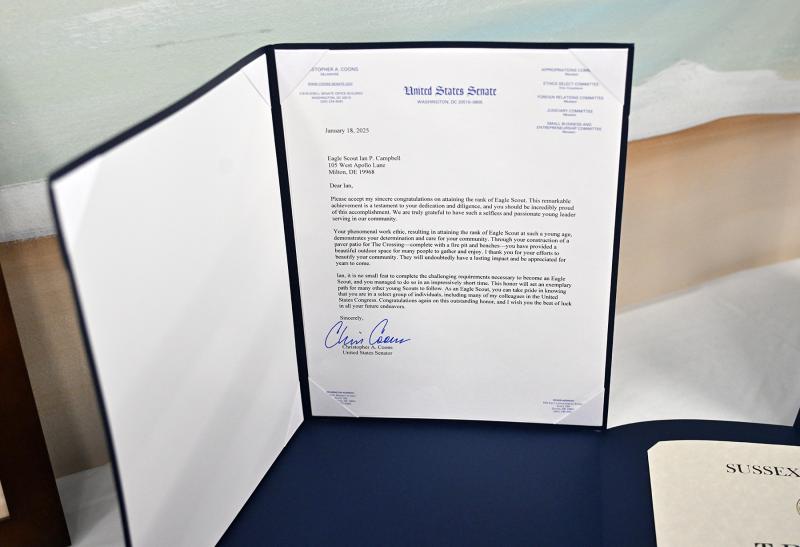 STOPHER A. COONS
DELAWARE
United States Senate
WASHINGTON, DC 20510-0805
APPROPRIATIONS COMM
ETHICS SELECT COMMITTEE
FOREIGN RELATIONS COMMITTEE
JUDICIARY COMMITTEE
SMALL BUSINESS AND
ENTREPRENEURSHIP COMMITTEE
January 18, 2025
Eagle Scout Ian P. Campbell
105 West Apollo Lane
Milton, DE 19968
Dear Ian,
Please accept my sincere congratulations on attaining the rank of Eagle Scout. This remarkable
achievement is a testament to your dedication and diligence, and you should be incredibly proud
of this accomplishment. We are truly grateful to have such a selfless and passionate young leader
serving in our community.
Your phenomenal work ethic, resulting in attaining the rank of Eagle Scout at such a young age,
demonstrates your determination and care for your community. Through your construction of a
paver patio for The Crossing—complete with a fire pit and benches—you have provided a
beautiful outdoor space for many people to gather and enjoy. I thank you for your efforts to
beautify your community. They will undoubtedly have a lasting impact and be appreciated for
years to come.
Ian, it is no small feat to complete the challenging requirements necessary to become an Eagle
Scout, and you managed to do so in an impressively short time. This honor will set an exemplary
path for many other young Scouts to follow. As an Eagle Scout, you can take pride in knowing
that you are in a select group of individuals, including many of my colleagues in the United
States Congress. Congratulations again on this outstanding honor, and I wish you the best of luck
in all your future endeavors.
Sincerely,
Chris Coons
Christopher A. Coons
United States Senator
SUSSEX